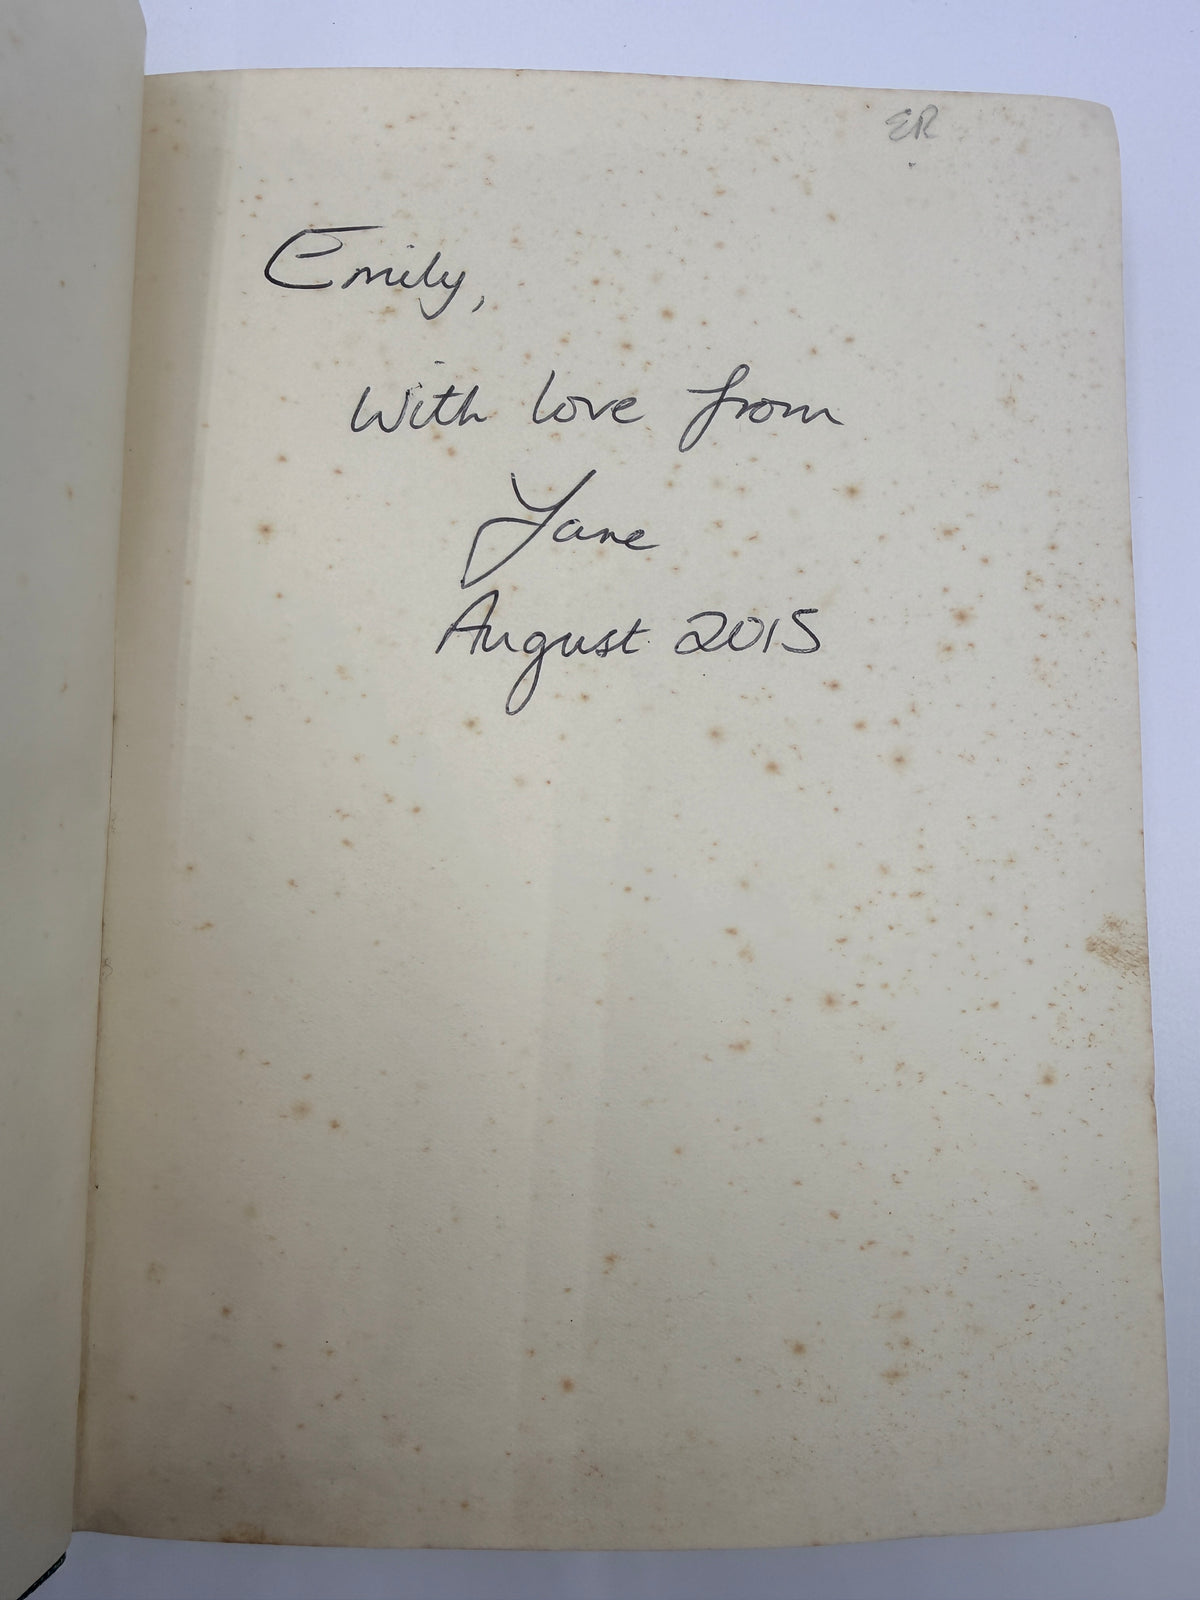 ER
Emily,
With love from
Jane
August 2015